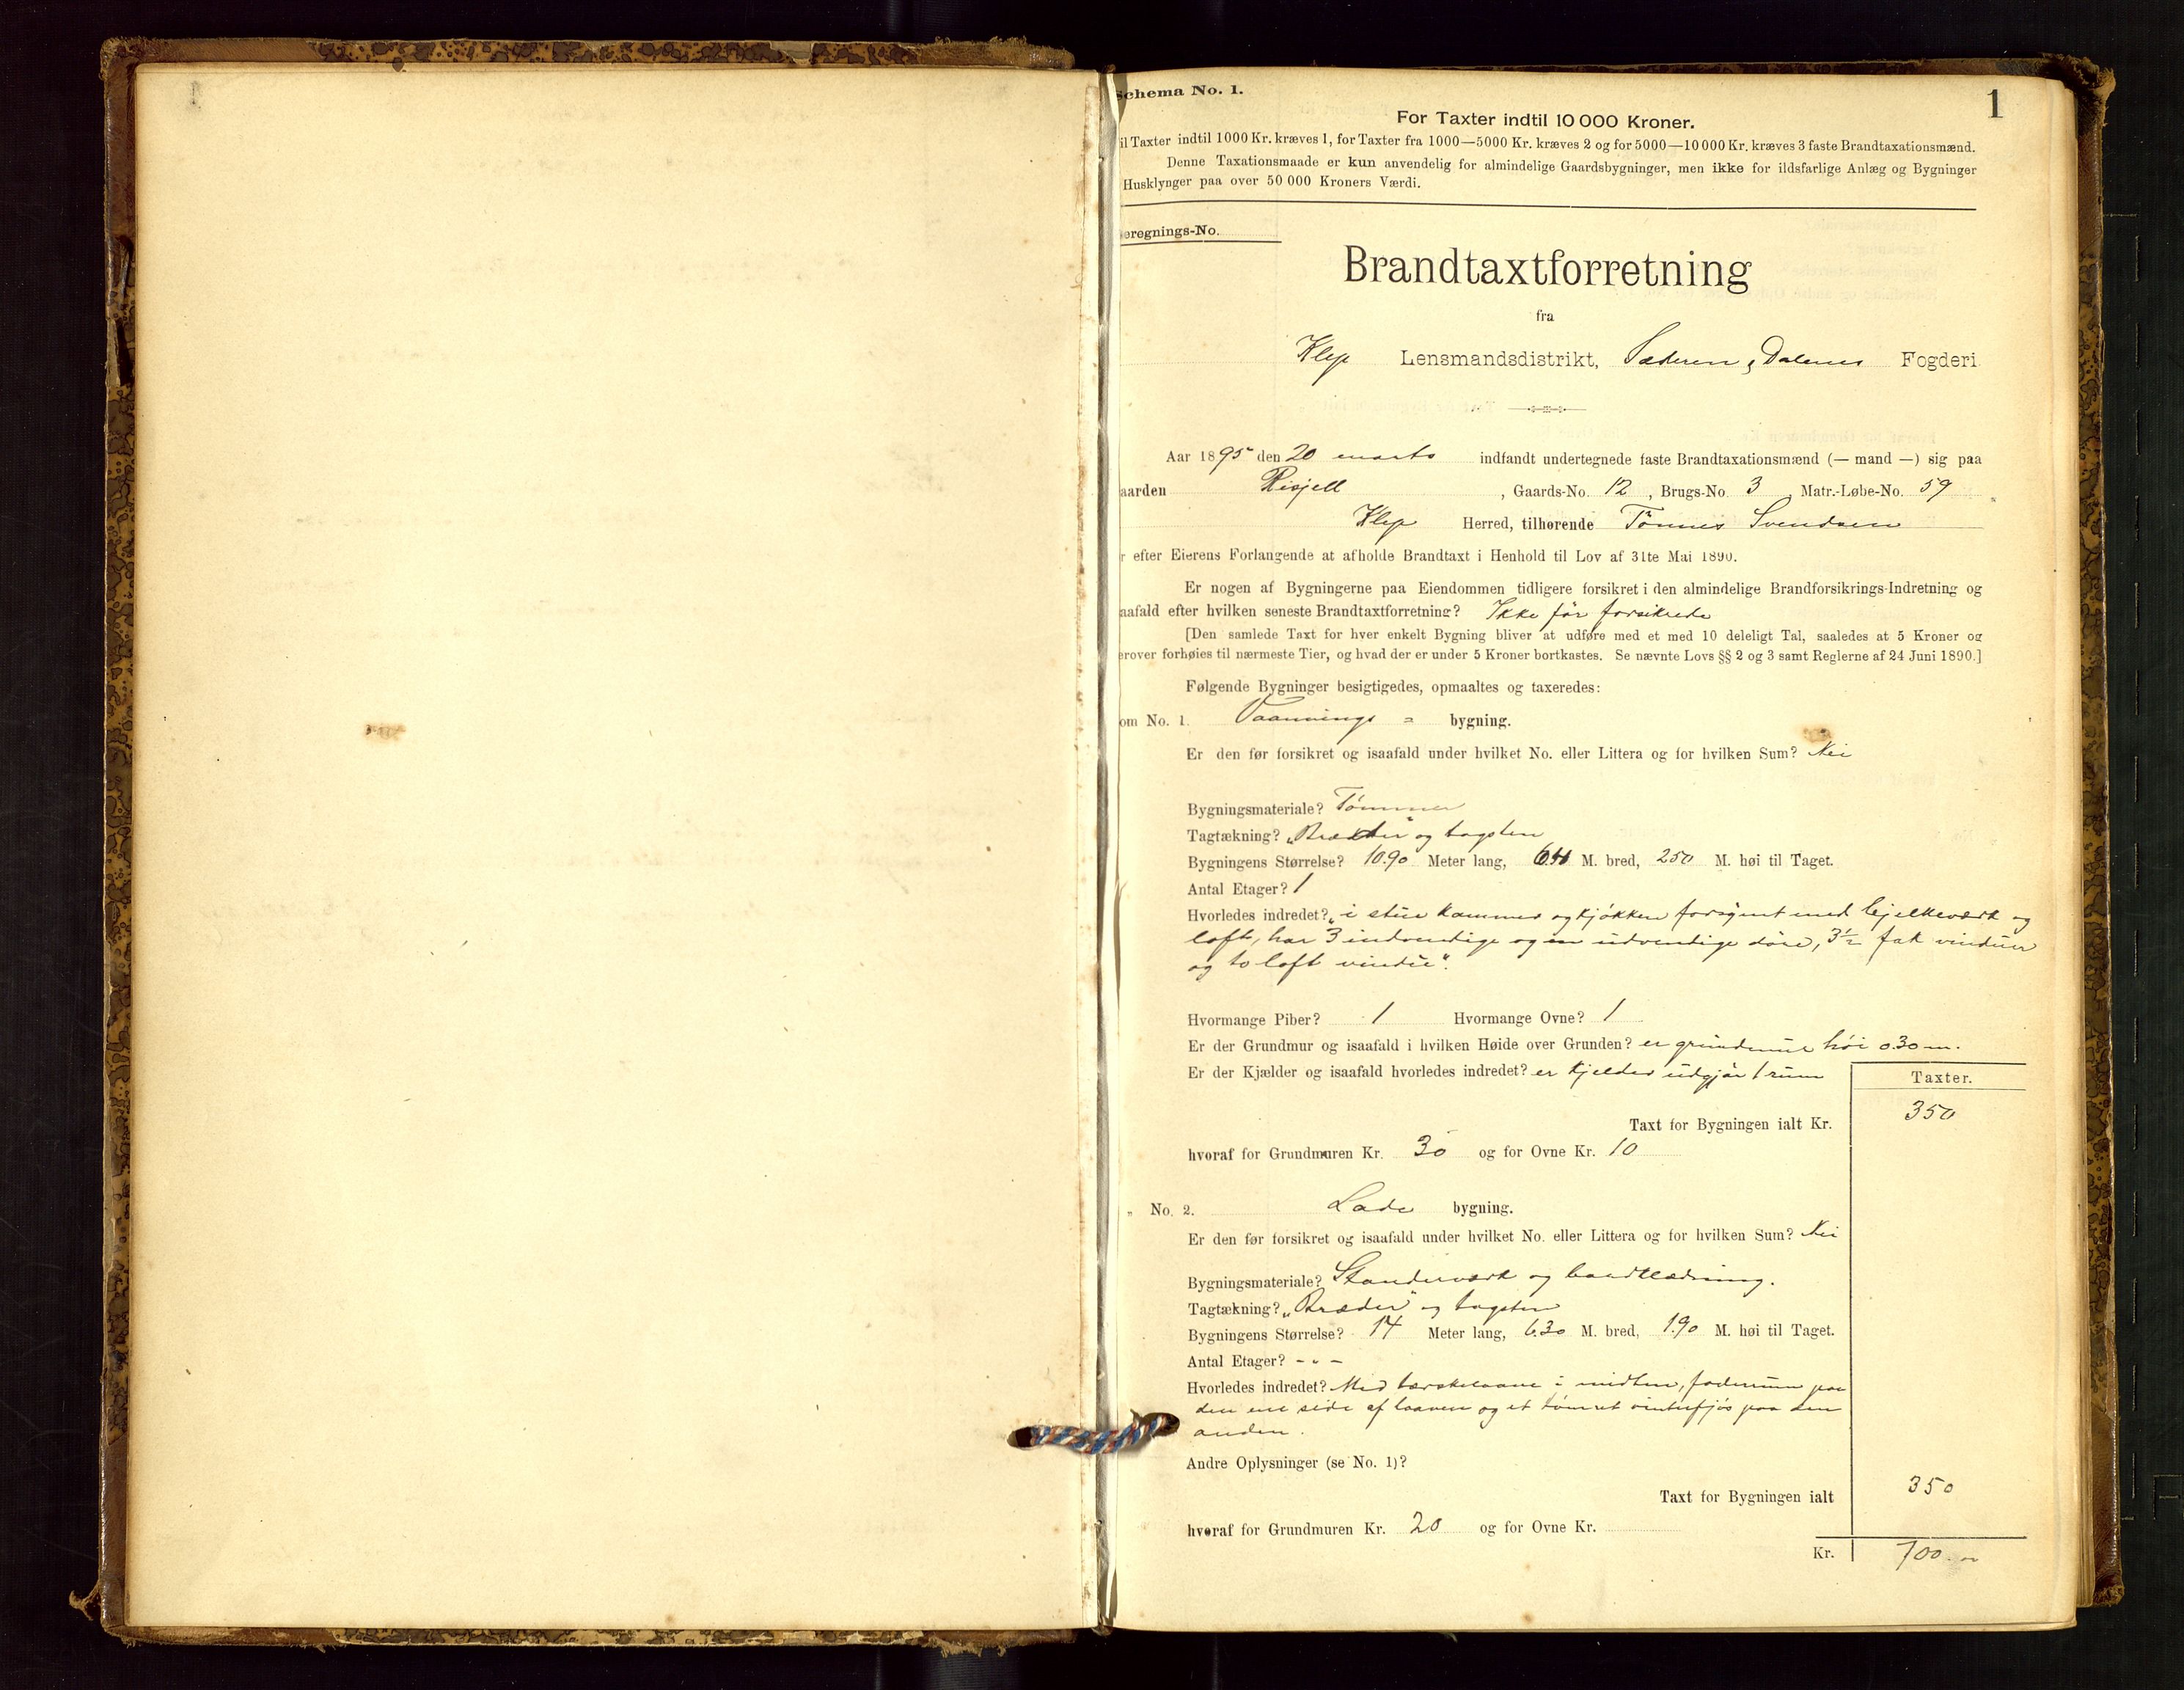 1
Schema No. 1.
For Taxter indtil 10 000 Kroner.
il Taxter indtil 1000 Kr. kræves 1, for Taxter fra 1000—5000 Kr. kræves 2 og for 5000—10 000 Kr. kræves 3 faste Brandtaxationsmænd.
Denne Taxationsmaade er kun anvendelig for almindelige Gaardsbygninger, men ikke for ildsfarlige Anlæg og Bygninger
Husklynger paa over 50 000 Kroners Værdi.
eregnings-No.
Brandtaxtforretning
fra
Klep Lensmandsdistrikt, Jæderen & Dalenes Fogderi
Aar 1895 den 20 marts indfandt undertegnede faste Brandtaxationsmænd (— mand —) sig paa
aarden Risjell, Gaards-No. 12, Brugs-No. 3 Matr.-Løbe-No. 59
Klep Herred, tilhørende Tönnes Svendsen
r efter Eierens Forlangende at afholde Brandtaxt i Henhold til Lov af 31te Mai 1890.
Er nogen af Bygningerne paa Eiendommen tidligere forsikret i den almindelige Brandforsikrings-Indretning og
aafald efter hvilken seneste Brandtaxtforretning? Ikke för forsikrede
[Den samlede Taxt for hver enkelt Bygning bliver at udføre med et med 10 deleligt Tal, saaledes at 5 Kroner og
erover forhøies til nærmeste Tier, og hvad der er under 5 Kroner bortkastes. Se nævnte Lovs §§ 2 og 3 samt Reglerne af 24 Juni 1890.]
Følgende Bygninger besigtigedes, opmaaltes og taxeredes:
om No. 1. Vaanings = bygning.
Er den før forsikret og isaafald under hvilket No. eller Littera og for hvilken Sum? Nei
Bygningsmateriale? Tömmer
Tagtækning? „Bræder" og tagsten
Bygningens Størrelse? 10.90 Meter lang, M. bred, 250 M. høi til Taget.
Antal Etager? 1
Hvorledes indredet? „i stue kammer og kjökken forsynt med bjelkeværk og
loft, har 3 indvendige og en udvendige döre, 3½ fak vinduer
og to loft vindue".
Hvormange Piber? 1 Hvormange Ovne? 1
Er der Grundmur og isaafald i hvilken Høide over Grunden? er grundmur höi 0.30 m.
Er der Kjælder og isaafald hvorledes indredet? er kjelder udgjör 1 rum
Taxter.
Taxt for Bygningen ialt Kr. 350
hvoraf for Grundmuren Kr. 30 og for Ovne Kr. 10
„ No. 2. Lade bygning.
Er den før forsikret og isaafald under hvilket No. eller Littera og for hvilken Sum? Nei
Bygningsmateriale? Standerværk og bordklædning.
Tagtækning? „Bræder" og tagsten
Bygningens Størrelse? 14 Meter lang, 6.30 M. bred, 1.90 M. høi til Taget.
Antal Etager? - „ -
Hvorledes indredet? Med tærskelaave i midten, foderrum paa
den ene side af laaven og et tömret vinterfjös paa den
anden.
Andre Oplysninger (se No. 1)?
Taxt for Bygningen ialt 350
hvoraf for Grundmuren Kr. 20 og for Ovne Kr.
Kr. 700.